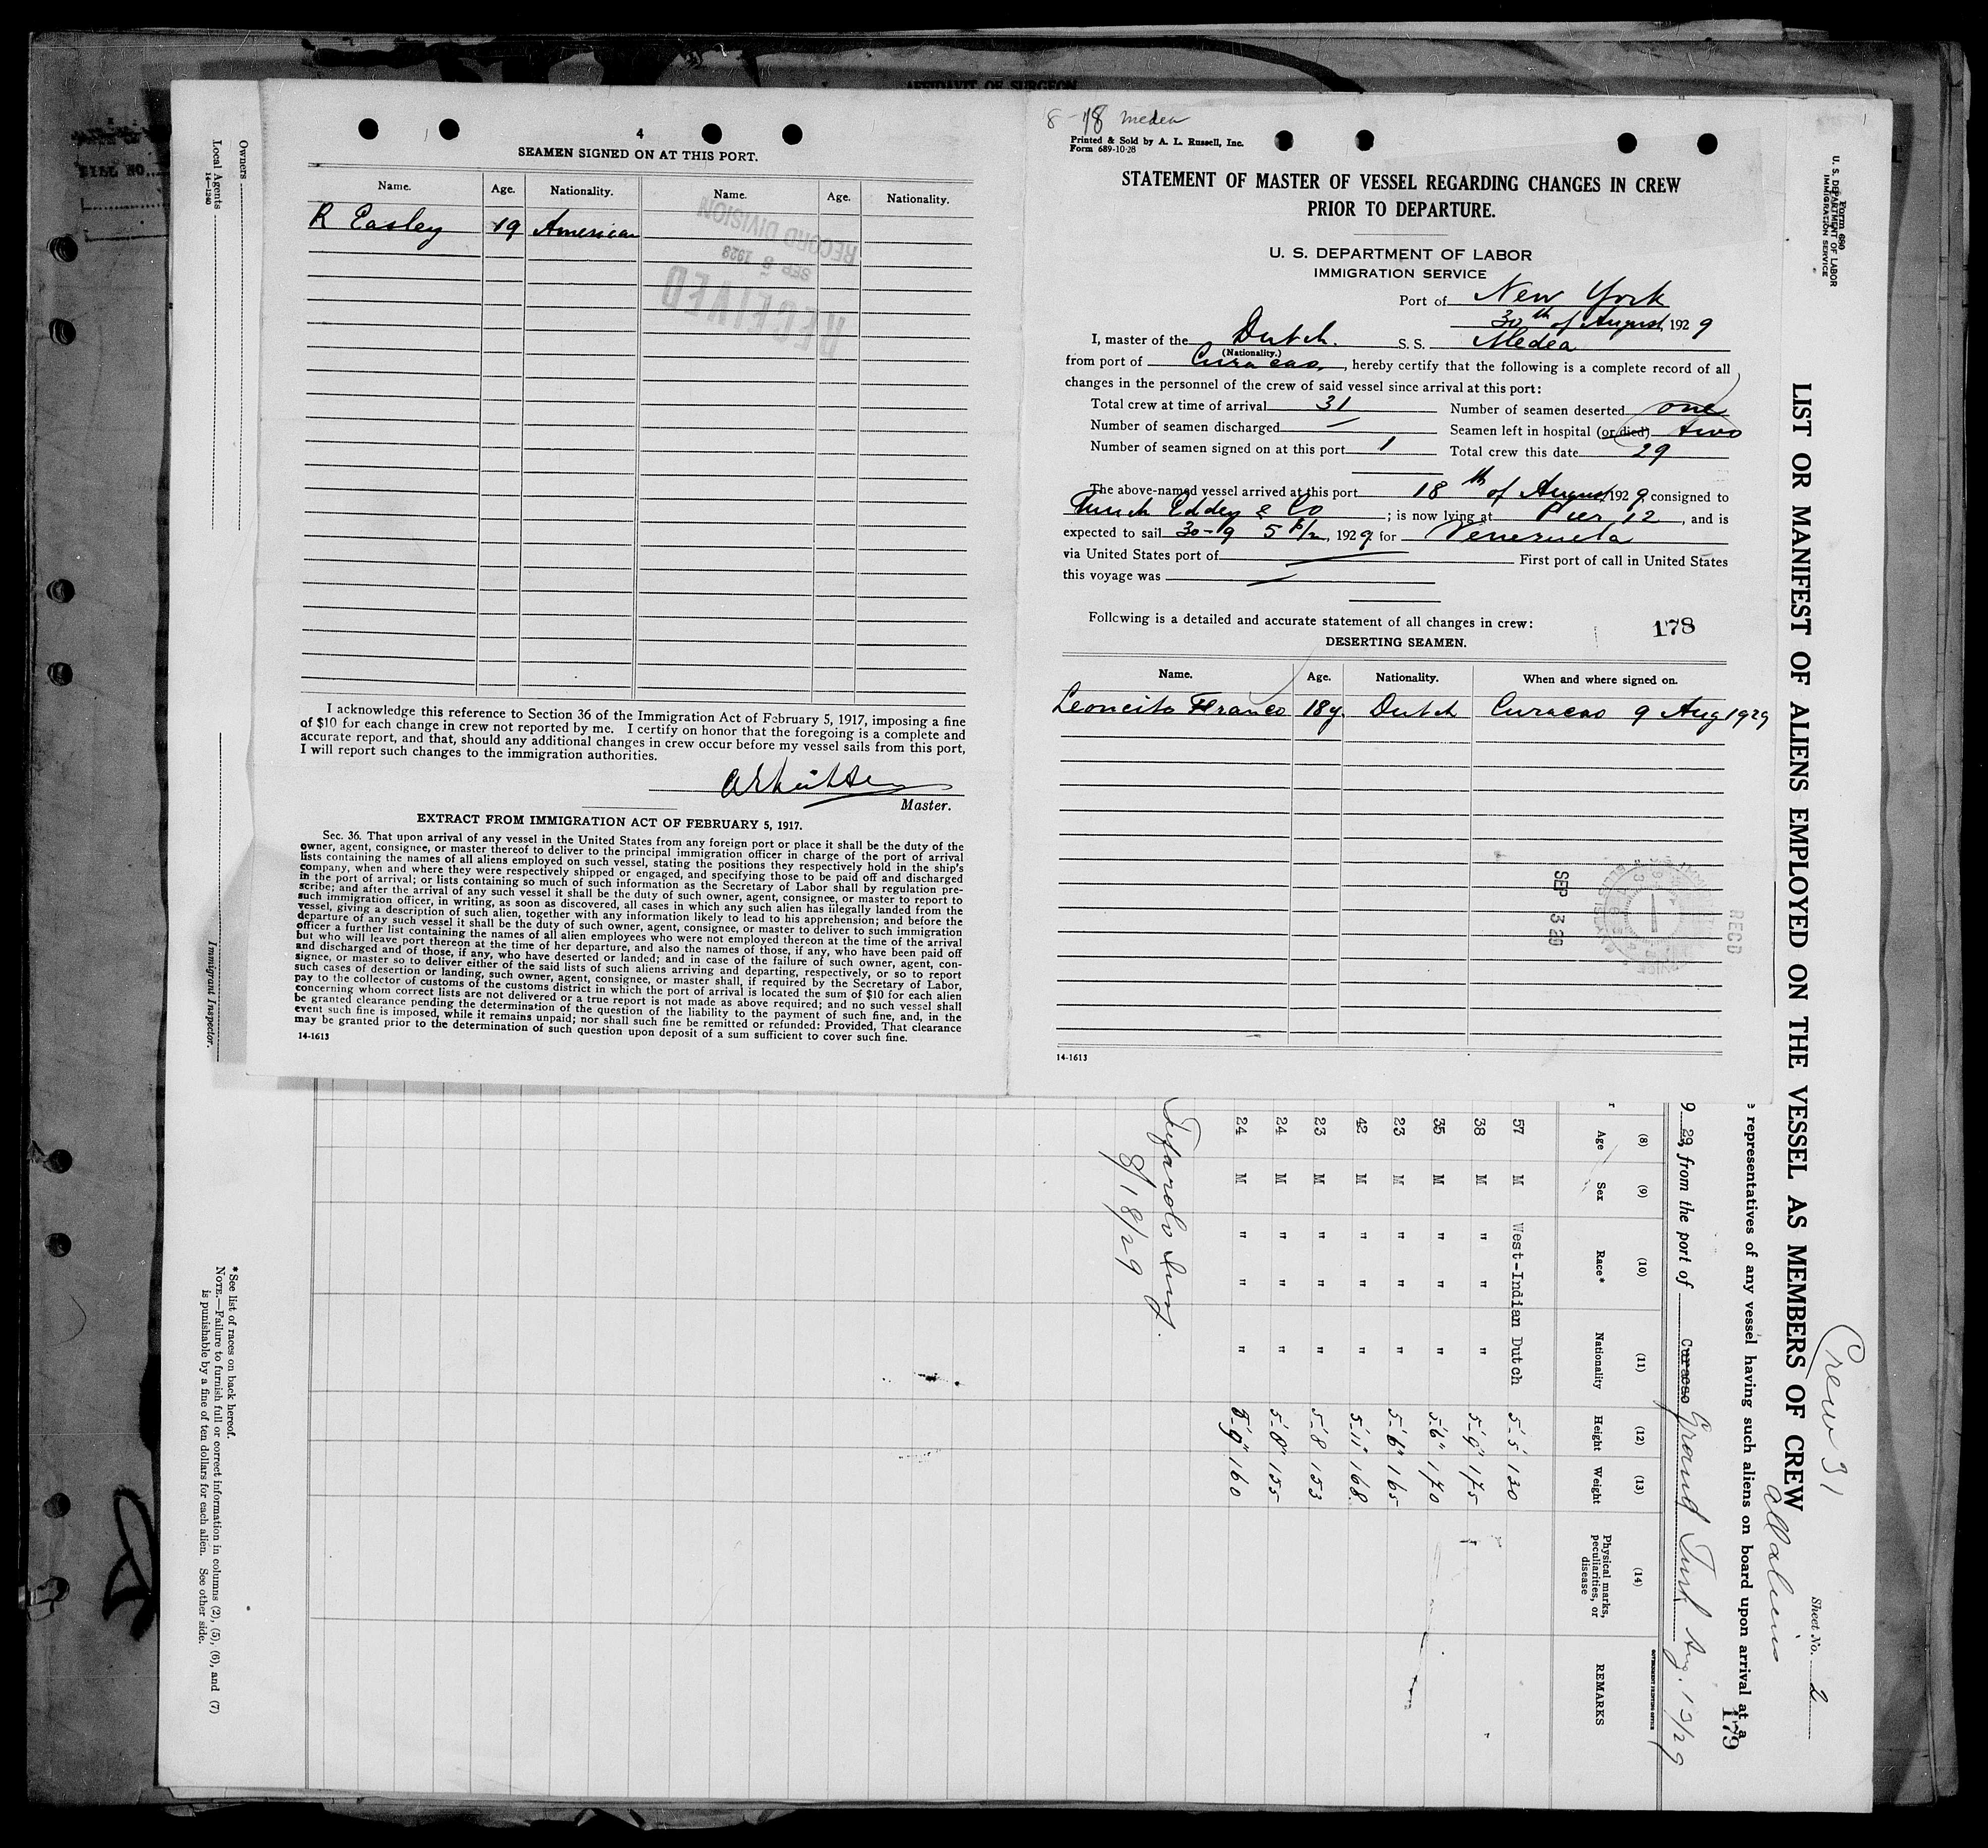 AFFIDAVIT OF SURGEON
4
SEAMEN SIGNED ON AT THIS PORT.
Name. Age. Nationality. Name. Age. Nationality.
R Easley 19 American
RECEIVED
SEP 5 1929
RECORD DIVISION
I acknowledge this reference to Section 36 of the Immigration Act of February 5, 1917, imposing a fine
of $10 for each change in crew not reported by me. I certify on honor that the foregoing is a complete and
accurate report, and that, should any additional changes in crew occur before my vessel sails from this port,
I will report such changes to the immigration authorities.
Master.
EXTRACT FROM IMMIGRATION ACT OF FEBRUARY 5, 1917.
Sec. 36. That upon arrival of any vessel in the United States from any foreign port or place it shall be the duty of the
owner, agent, consignee, or master thereof to deliver to the principal immigration officer in charge of the port of arrival
lists containing the names of all aliens employed on such vessel, stating the positions they respectively hold in the ship's
company, when and where they were respectively shipped or engaged, and specifying those to be paid off and discharged
in the port of arrival; or lists containing so much of such information as the Secretary of Labor shall by regulation pre-
scribe; and after the arrival of any such vessel it shall be the duty of such owner, agent, consignee, or master to report to
such immigration officer, in writing, as soon as discovered, all cases in which any such alien has illegally landed from the
vessel, giving a description of such alien, together with any information likely to lead to his apprehension; and before the
departure of any such vessel it shall be the duty of such owner, agent, consignee, or master to deliver to such immigration
officer a further list containing the names of all alien employees who were not employed thereon at the time of the arrival
but who will leave port thereon at the time of her departure, and also the names of those, if any, who have been paid off
and discharged and of those, if any, who have deserted or landed; and in case of the failure of such owner, agent, con-
signee, or master so to deliver either of the said lists of such aliens arriving and departing, respectively, or so to report
such cases of desertion or landing, such owner, agent, consignee, or master shall, if required by the Secretary of Labor,
pay to the collector of customs of the customs district in which the port of arrival is located the sum of $10 for each alien
concerning whom correct lists are not delivered or a true report is not made as above required; and no such vessel shall
be granted clearance pending the determination of the question of the liability to the payment of such fine, and, in the
event such fine is imposed, while it remains unpaid; nor shall such fine be remitted or refunded: Provided, That clearance
may be granted prior to the determination of such question upon deposit of a sum sufficient to cover such fine.
14-1613
8-18 Medea
Printed & Sold by A. L. Russell, Inc.
Form 689-10-28
STATEMENT OF MASTER OF VESSEL REGARDING CHANGES IN CREW
PRIOR TO DEPARTURE.
U. S. DEPARTMENT OF LABOR
IMMIGRATION SERVICE
Port of New York
30th of August, 1929
I, master of the Dutch S. S. Medea
(Nationality.)
from port of Curacao, hereby certify that the following is a complete record of all
changes in the personnel of the crew of said vessel since arrival at this port:
Total crew at time of arrival 31 Number of seamen deserted one
Number of seamen discharged — Seamen left in hospital (or died) two
Number of seamen signed on at this port 1 Total crew this date 29
The above-named vessel arrived at this port 18th of August, 1929 consigned to
Funch Eddey & Co; is now lying at Pier 12, and is
expected to sail 30-9 5 , 1929 for Venezuela
via United States port of — First port of call in United States
this voyage was —
Following is a detailed and accurate statement of all changes in crew:
178
DESERTING SEAMEN.
Name. Age. Nationality. When and where signed on.
Leoncito Franco 18y. Dutch Curacao 9 Aug 1929
SEP 3 29
RECD
14-1613
Form 680
U. S. DEPARTMENT OF LABOR
IMMIGRATION SERVICE
LIST OR MANIFEST OF ALIENS EMPLOYED ON THE VESSEL AS MEMBERS OF CREW
Crew 31
all aliens
Sheet No. 2
representatives of any vessel having such aliens on board upon arrival at a
179
9 29, from the port of Curacao Grand Turk Aug. 13/29
(8) (9) (10) (11) (12) (13) (14)
Age Sex Race* Nationality Height Weight Physical marks, peculiarities, or disease REMARKS
GOVERNMENT PRINTING OFFICE
57 M West-Indian Dutch 5-5 130
38 M " " " 5-9" 175
35 M " " " 5'6" 170
23 M " " " 5-6" 165
42 M " " " 5-11" 168
23 M " " " 5-8 153
24 M " " " 5-8" 155
24 M " " " 5-9" 160
8/18/29
Owners
Local Agents
14-1240
Immigrant Inspector.
*See list of races on back hereof.
NOTE.—Failure to furnish full or correct information in columns (2), (5), (6), and (7)
is punishable by a fine of ten dollars for each alien. See other side.